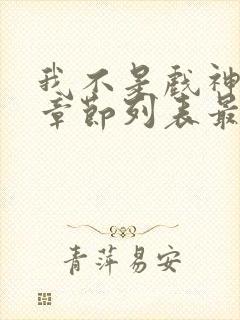 我不是戏神
章节列表最
青萍易安